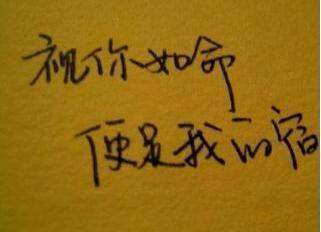 视你如命
便是我的宿